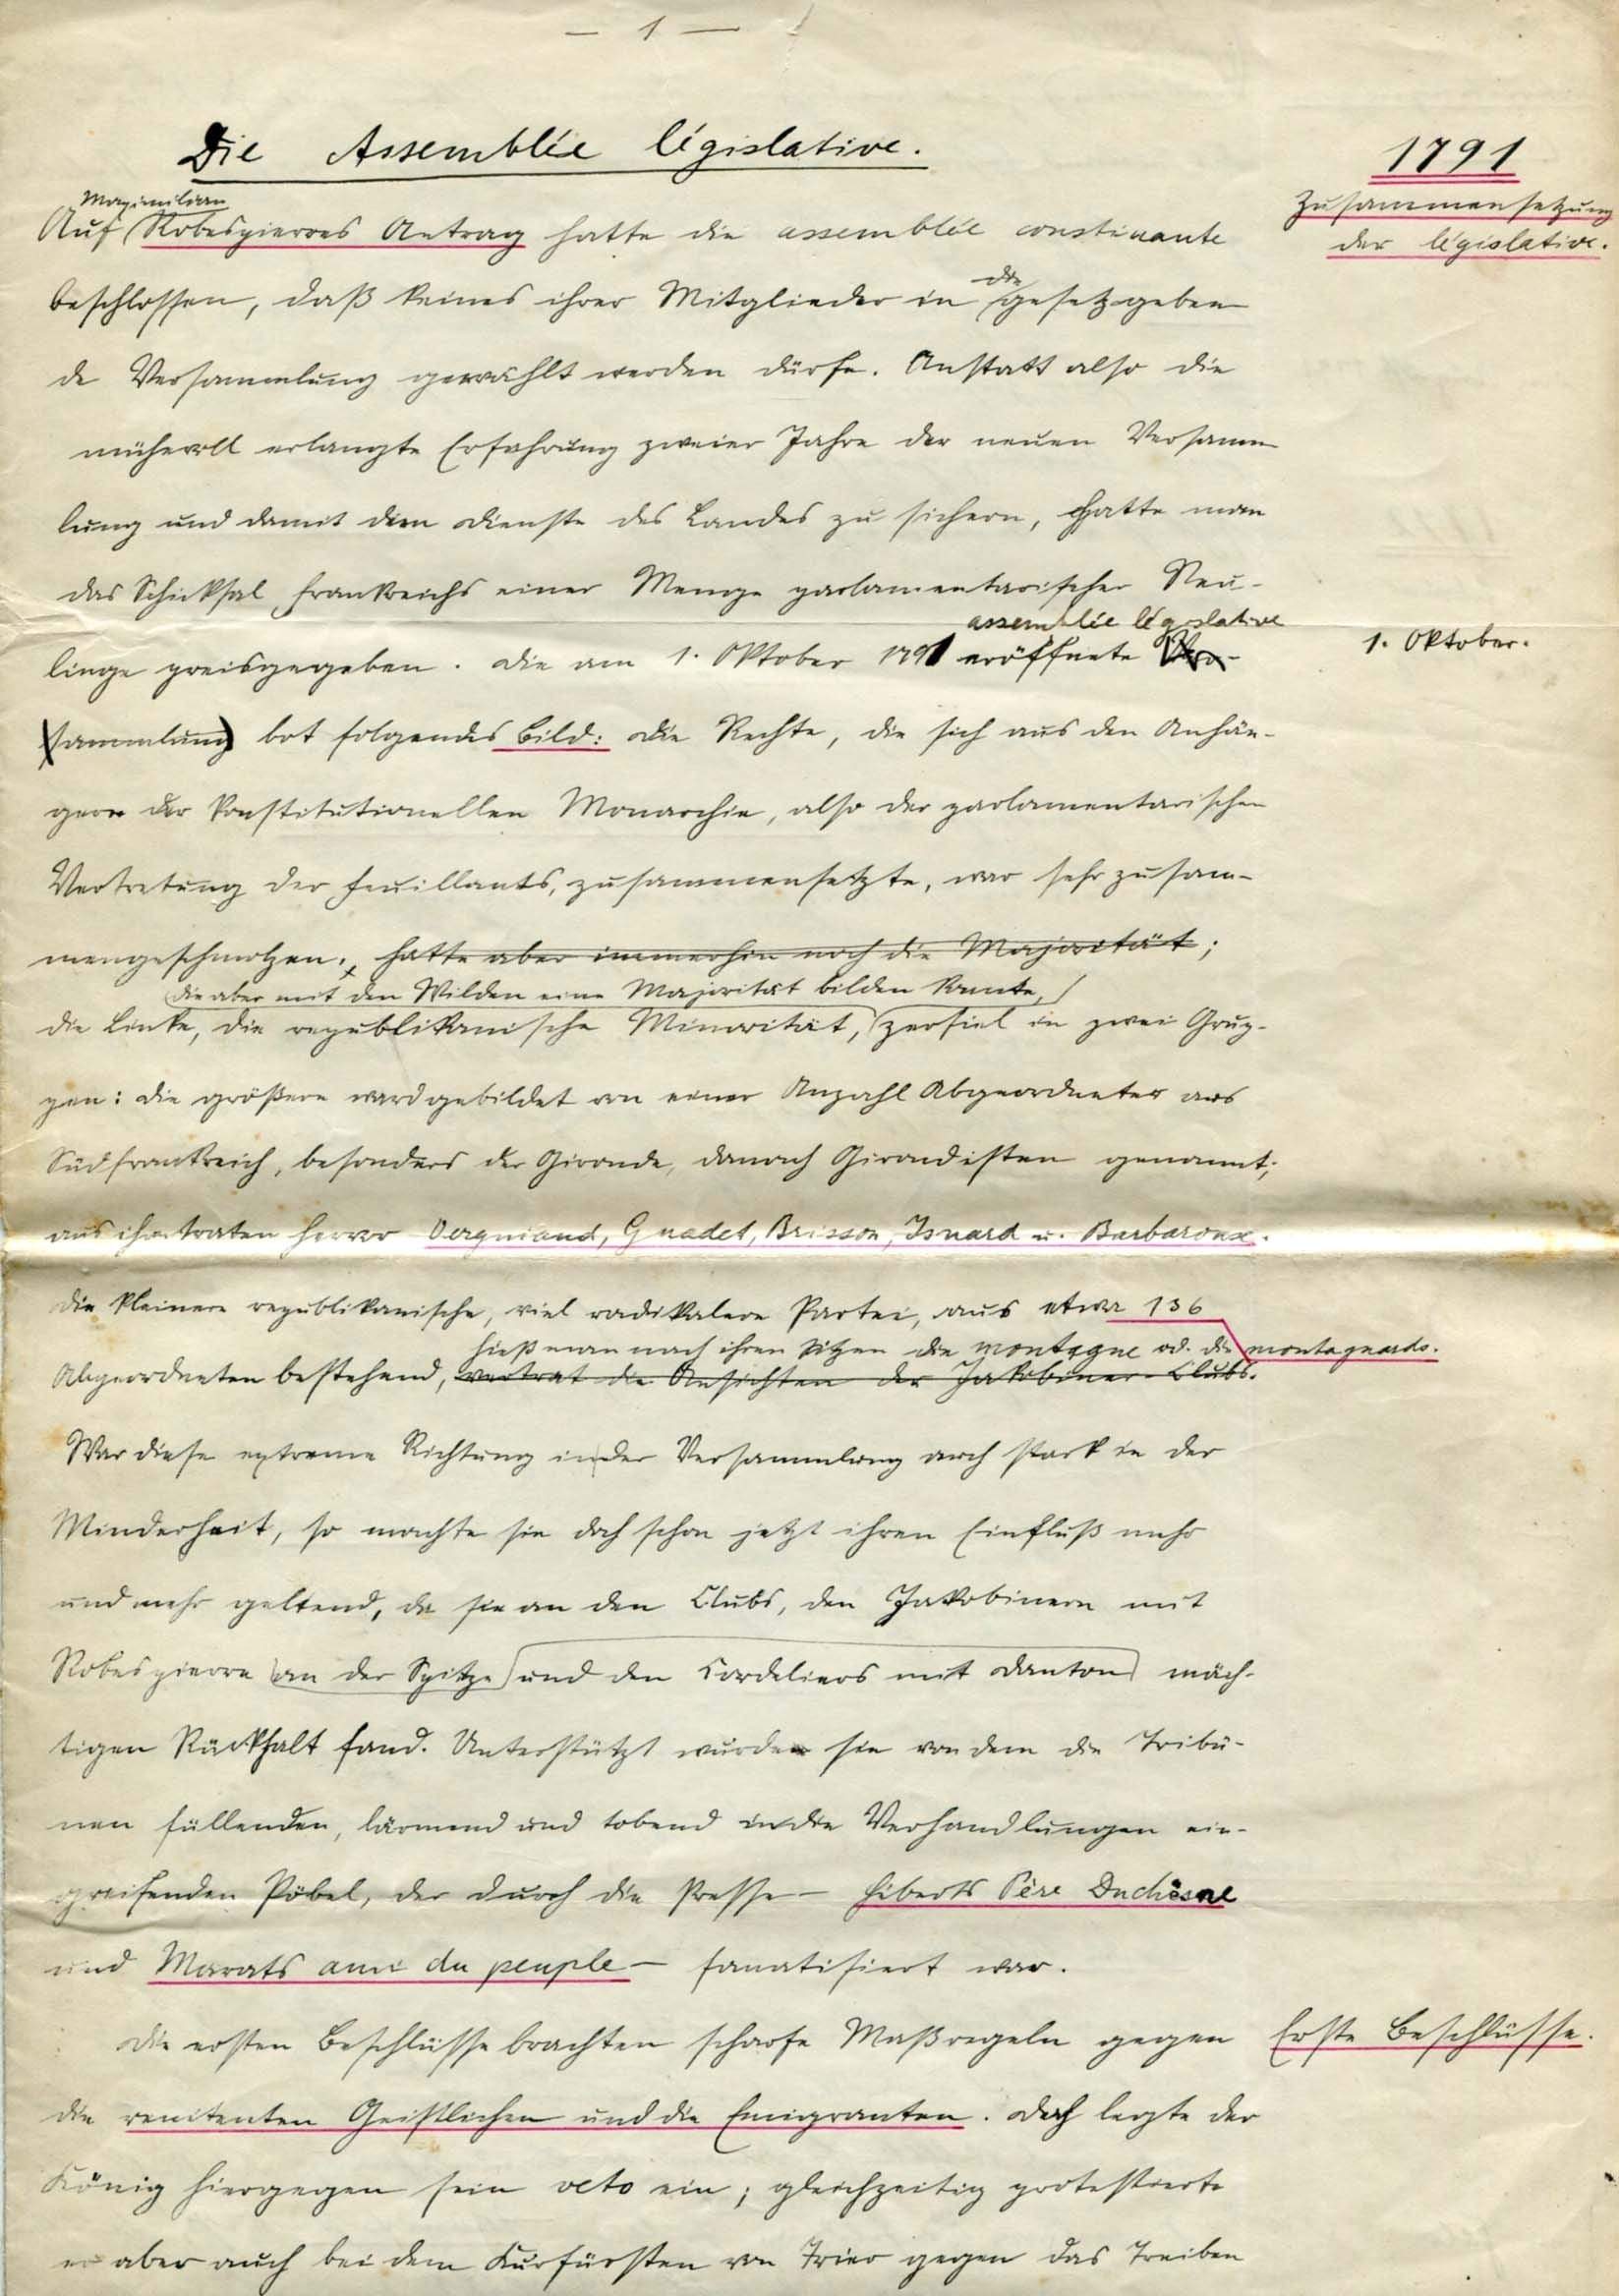 — 1 —
Die Assemblée législative.
1791
Zusammensetzung
der législative.
Maximilian
Auf Robespierres Antrag hatte die assemblée constinante
beschlossen, daß keines ihrer Mitglieder in die gesetzgeben
de Versammlung gewählt werden dürfe. Anstatt also die
mühevoll erlangte Erfahrung zweier Jahre der neuen Versamm
lung und damit dem Dienste des Landes zu sichern, hatte man
das Schicksal Frankreichs einer Menge parlamentarischer Neu-
assemblée législative
linge preisgegeben. Die am 1. Oktober 1791 eröffnete Ver-
1. Oktober.
sammlung bot folgendes Bild: Die Rechte, die sich aus den Anhän-
gern der konstitutionellen Monarchie, also der parlamentarischen
Vertretung der Feuillants, zusammensetzte, war sehr zusam-
mengeschmolzen, hatte aber immerhin noch die Majorität;
die aber mit den Wilden eine Majorität bilden konnte,
die Linke, die republikanische Minorität, zerfiel in zwei Grup-
pen: die größere ward gebildet von einer Anzahl Abgeordneter aus
Südfrankreich, besonders der Gironde, danach Girondisten genannt;
aus ihr traten hervor Vergniaud, Guadet, Brisson, Isnard u. Barbaroux.
Die kleinere republikanische, viel radikalere Partei, aus etwa 136
hieß man nach ihren Sitzen die montagne od. die montagnards.
Abgeordneten bestehend, vertrat die Ansichten der Jakobiner-Clubs.
War diese extreme Richtung in der Versammlung auch stark in der
Minderheit, so machte sie doch schon jetzt ihren Einfluß mehr
und mehr geltend, da sie an den Clubs, den Jakobinern mit
Robespierre an der Spitze und den Cordeliers mit Danton mäch-
tigen Rückhalt fand. Unterstützt wurde sie von dem die Tribü-
nen füllenden, lärmend und tobend in die Verhandlungen ein-
greifenden Pöbel, der durch die Presse — Héberts Père Duchêsne
und Marats ami du peuple — fanatisiert war.
Die ersten Beschlüsse brachten scharfe Maßregeln gegen
Erste Beschlüsse.
die renitenten Geistlichen und die Emigranten. Doch legte der
König hiergegen sein veto ein; gleichzeitig protestierte
er aber auch bei dem Kurfürsten von Trier gegen das Treiben